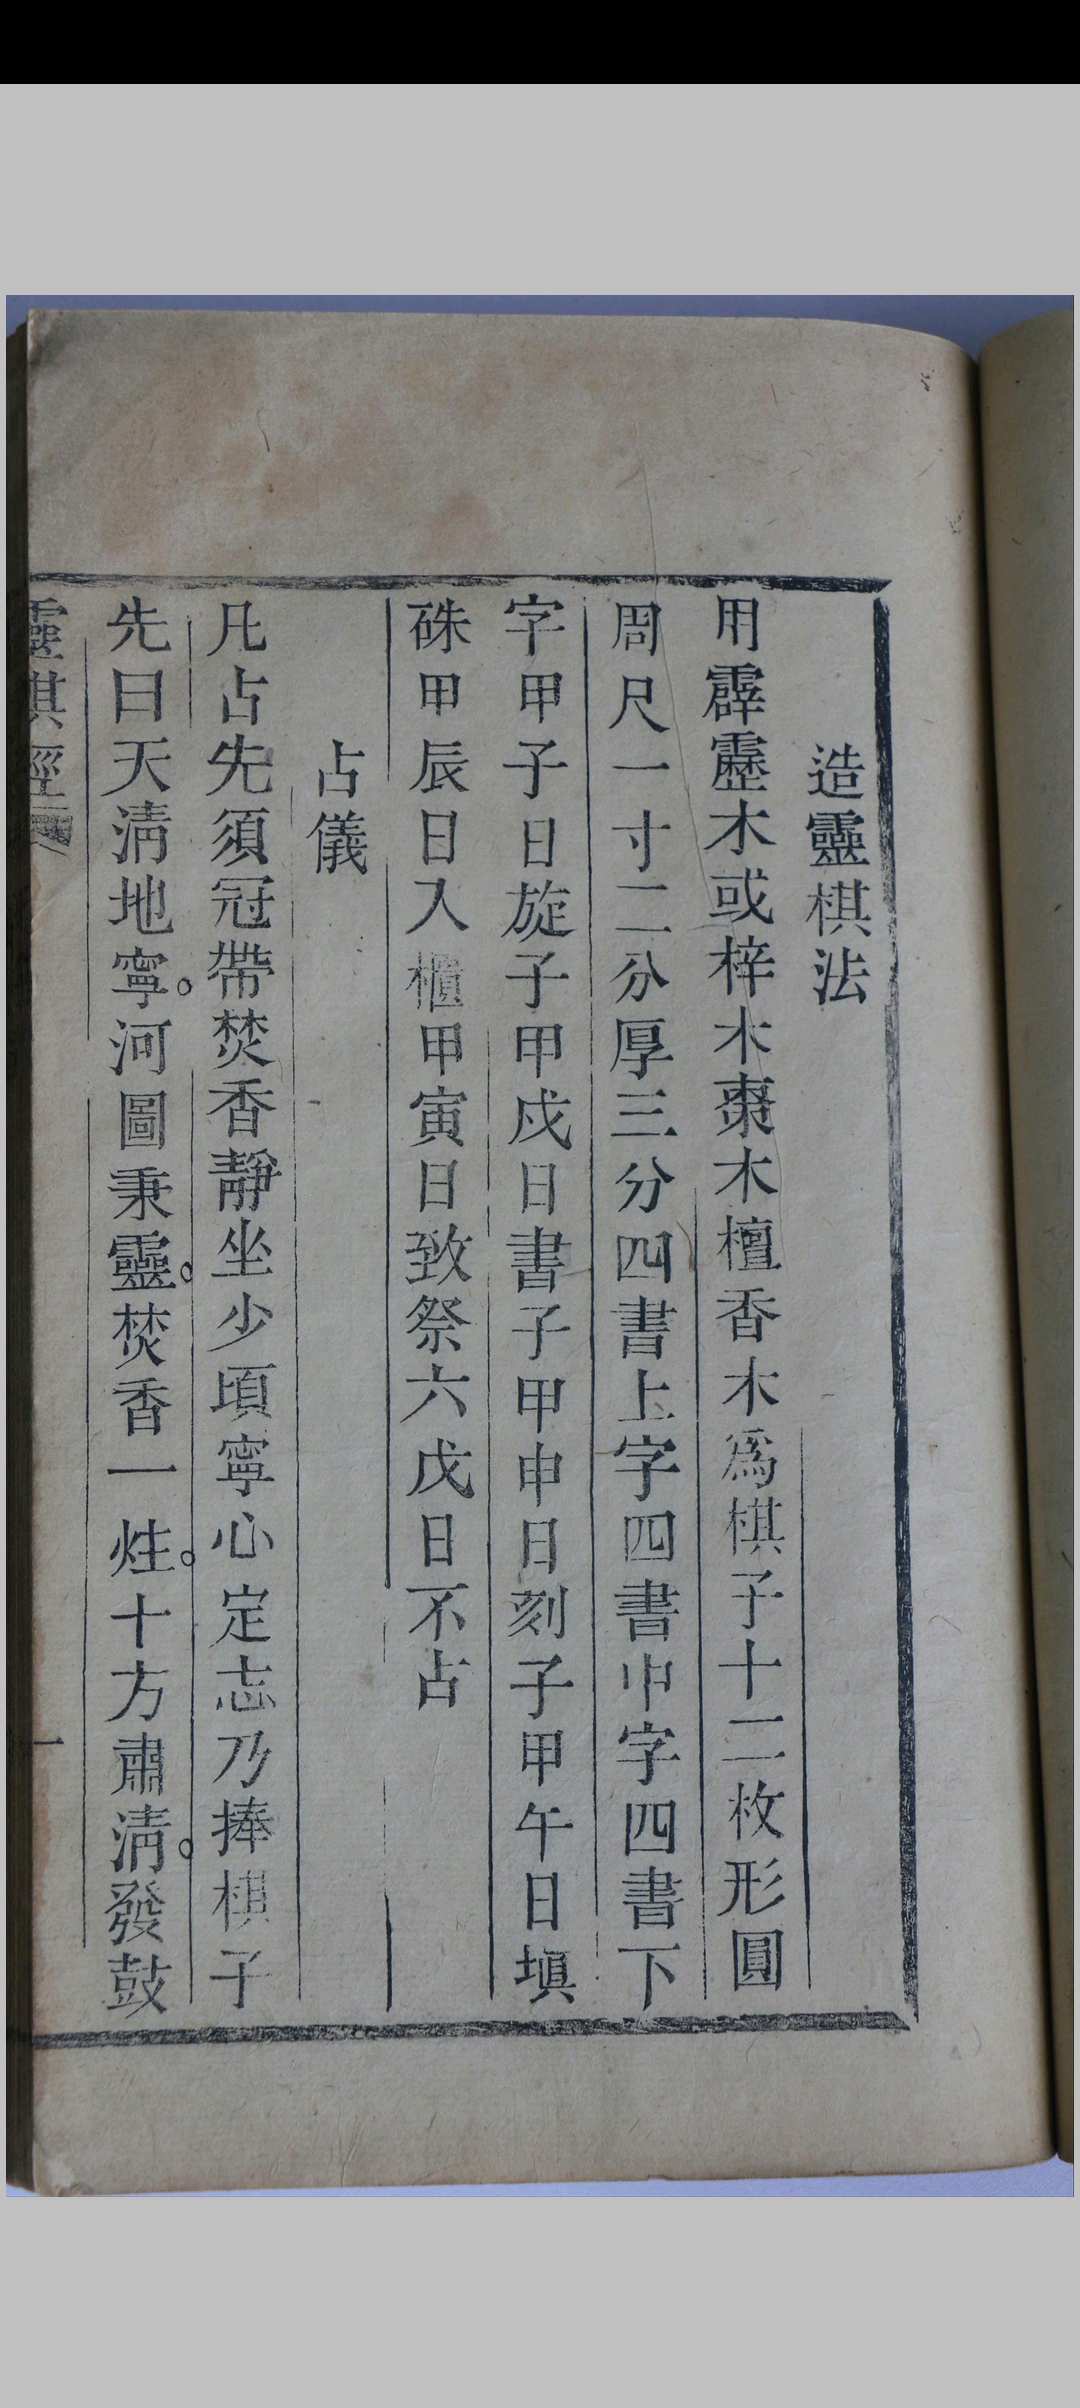 造靈棋法
用霹靂木或梓木棗木檀香木爲棋子十二枚形圓
周尺一寸二分厚三分四書上字四書中字四書下
字甲子日旋子甲戍日書子甲申日刻子甲午日塡
硃甲辰日入櫃甲寅日致祭六戊日不占
占儀
凡占先須冠帶焚香靜坐少頃寧心定志乃捧棋子
先曰天淸地寧。河圖秉靈。焚香一炷。十方肅淸。發鼓
靈棋經
一